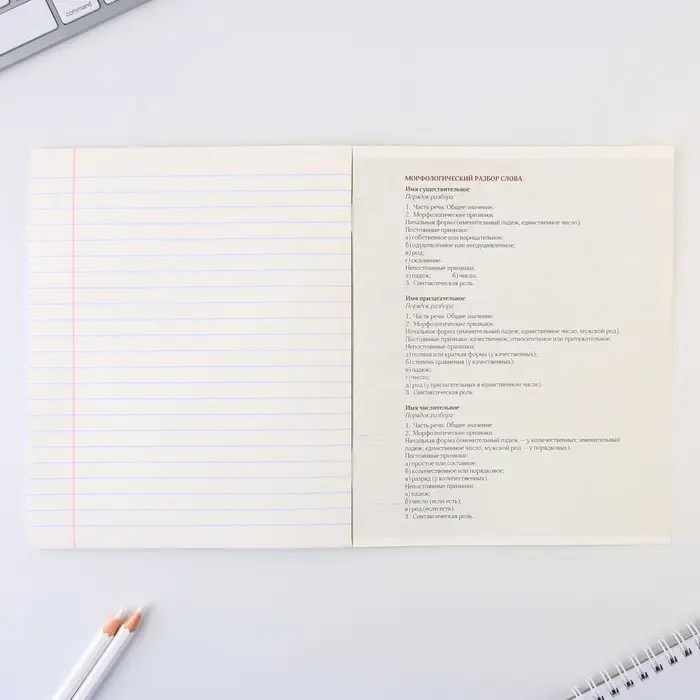 command
МОРФОЛОГИЧЕСКИЙ РАЗБОР СЛОВА
Имя существительное
Порядок разбора
1. Часть речи. Общее значение.
2. Морфологические признаки.
Начальная форма (именительный падеж, единственное число).
Постоянные признаки:
а) собственное или нарицательное;
б) одушевлённое или неодушевлённое;
в) род;
г) склонение.
Непостоянные признаки:
а) падеж; б) число.
3. Синтаксическая роль.
Имя прилагательное
Порядок разбора
1. Часть речи. Общее значение.
2. Морфологические признаки.
Начальная форма (именительный падеж, единственное число, мужской род).
Постоянные признаки: качественное, относительное или притяжательное.
Непостоянные признаки:
а) полная или краткая форма (у качественных);
б) степень сравнения (у качественных);
в) падеж;
г) число;
д) род (у прилагательных в единственном числе).
3. Синтаксическая роль.
Имя числительное
Порядок разбора
1. Часть речи. Общее значение.
2. Морфологические признаки.
Начальная форма (именительный падеж — у количественных; именительный
падеж, единственное число, мужской род — у порядковых).
Постоянные признаки:
а) простое или составное;
б) количественное или порядковое;
в) разряд (у количественных).
Непостоянные признаки:
а) падеж;
б) число (если есть);
в) род (если есть).
3. Синтаксическая роль.